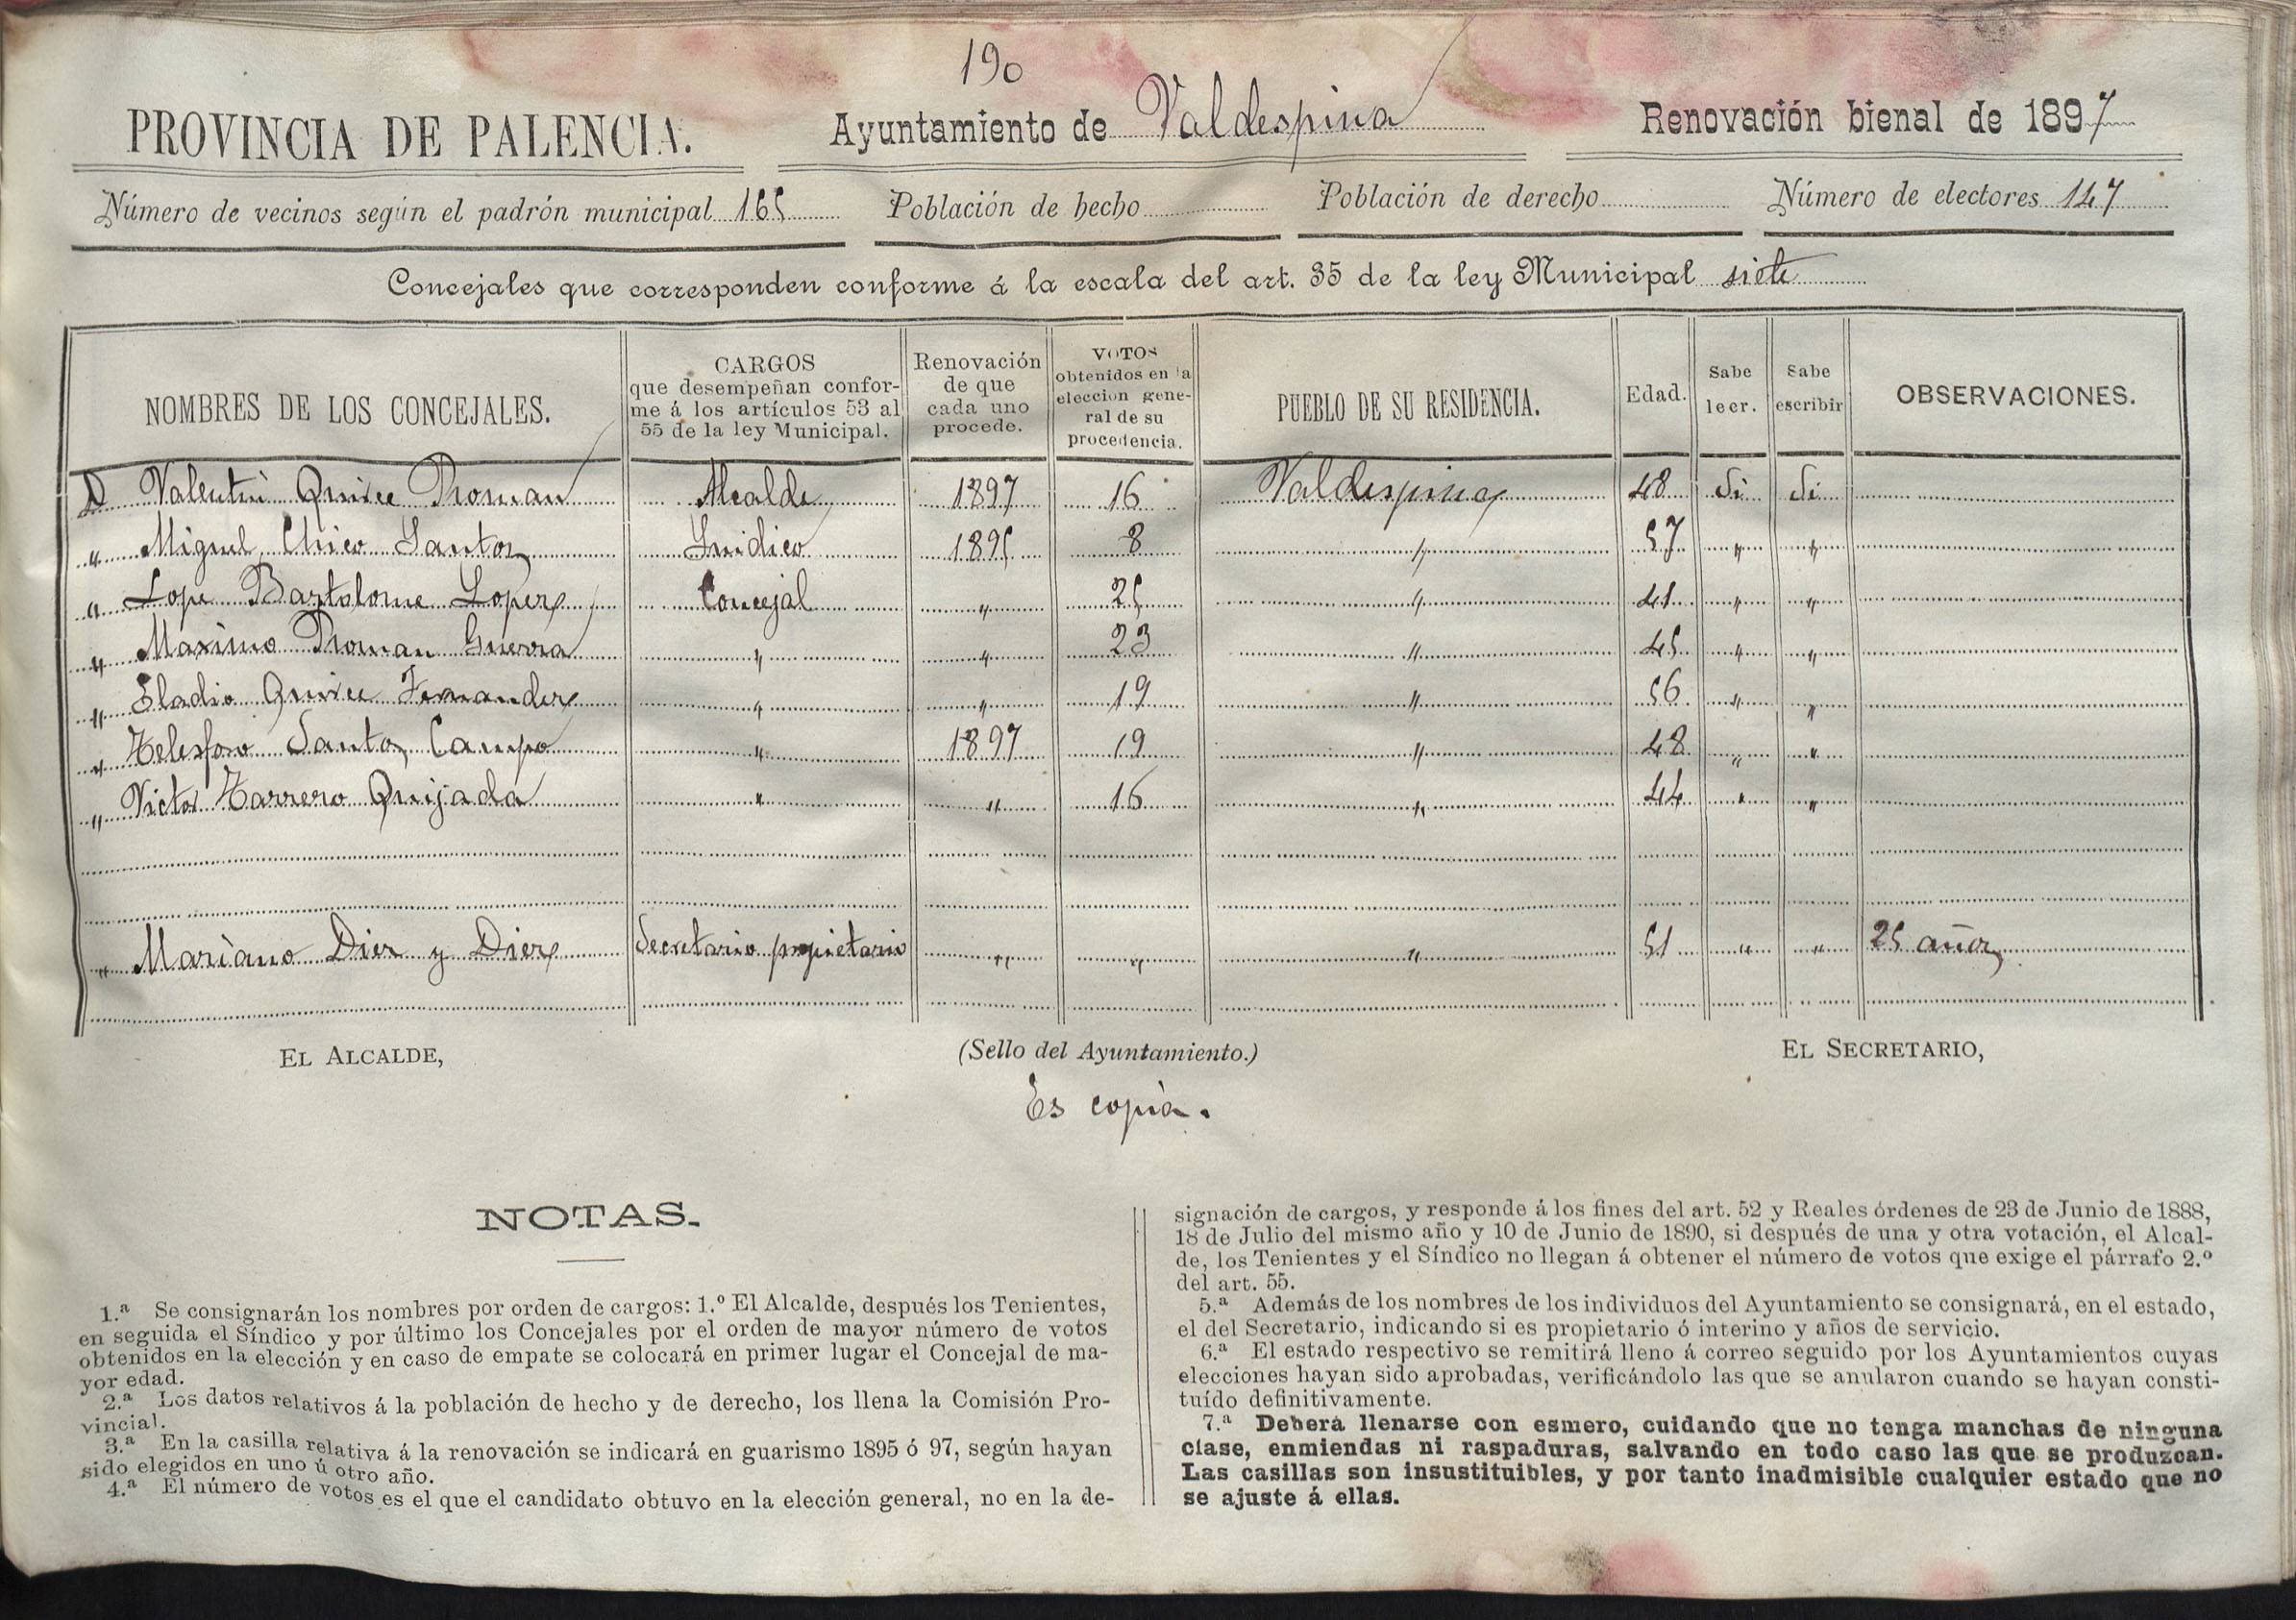 190
PROVINCIA DE PALENCIA. Ayuntamiento de Valdespina Renovación bienal de 1897
Número de vecinos según el padrón municipal 165 Población de hecho Población de derecho Número de electores 147
Concejales que corresponden conforme á la escala del art. 35 de la ley Municipal siete
NOMBRES DE LOS CONCEJALES.
CARGOS
que desempeñan confor-
me á los artículos 53 al
55 de la ley Municipal.
Renovación
de que
cada uno
procede.
VOTOS
obtenidos en la
eleccion gene-
ral de su
procedencia.
PUEBLO DE SU RESIDENCIA.
Edad.
Sabe
leer.
Sabe
escribir
OBSERVACIONES.
D Valentin Quirce Roman Alcalde 1897 16 Valdespina 48 Si Si
" Miguel Chico Santos Sindico 1895 8 " 57 " "
" Lope Bartolome Lopez Concejal " 25 " 41 " "
" Maximo Roman Guerra " " 23 " 45 " "
" Eladio Quirce Fernandez " " 19 " 56 " "
" Telesforo Santos Campo " 1897 19 " 48 " "
" Victor Tarrero Quijada " " 16 " 44 " "
" Mariano Diez y Diez Secretario propietario " " " 51 " " 25 años
EL ALCALDE, (Sello del Ayuntamiento.) EL SECRETARIO,
Es copia.
NOTAS.
1.ª Se consignarán los nombres por orden de cargos: 1.º El Alcalde, después los Tenientes,
en seguida el Síndico y por último los Concejales por el orden de mayor número de votos
obtenidos en la elección y en caso de empate se colocará en primer lugar el Concejal de ma-
yor edad.
2.ª Los datos relativos á la población de hecho y de derecho, los llena la Comisión Pro-
vincial.
3.ª En la casilla relativa á la renovación se indicará en guarismo 1895 ó 97, según hayan
sido elegidos en uno ú otro año.
4.ª El número de votos es el que el candidato obtuvo en la elección general, no en la de-
signación de cargos, y responde á los fines del art. 52 y Reales órdenes de 23 de Junio de 1888,
18 de Julio del mismo año y 10 de Junio de 1890, si después de una y otra votación, el Alcal-
de, los Tenientes y el Síndico no llegan á obtener el número de votos que exige el párrafo 2.º
del art. 55.
5.ª Además de los nombres de los individuos del Ayuntamiento se consignará, en el estado,
el del Secretario, indicando si es propietario ó interino y años de servicio.
6.ª El estado respectivo se remitirá lleno á correo seguido por los Ayuntamientos cuyas
elecciones hayan sido aprobadas, verificándolo las que se anularon cuando se hayan consti-
tuído definitivamente.
7.ª Deberá llenarse con esmero, cuidando que no tenga manchas de ninguna
clase, enmiendas ni raspaduras, salvando en todo caso las que se produzcan.
Las casillas son insustituibles, y por tanto inadmisible cualquier estado que no
se ajuste á ellas.